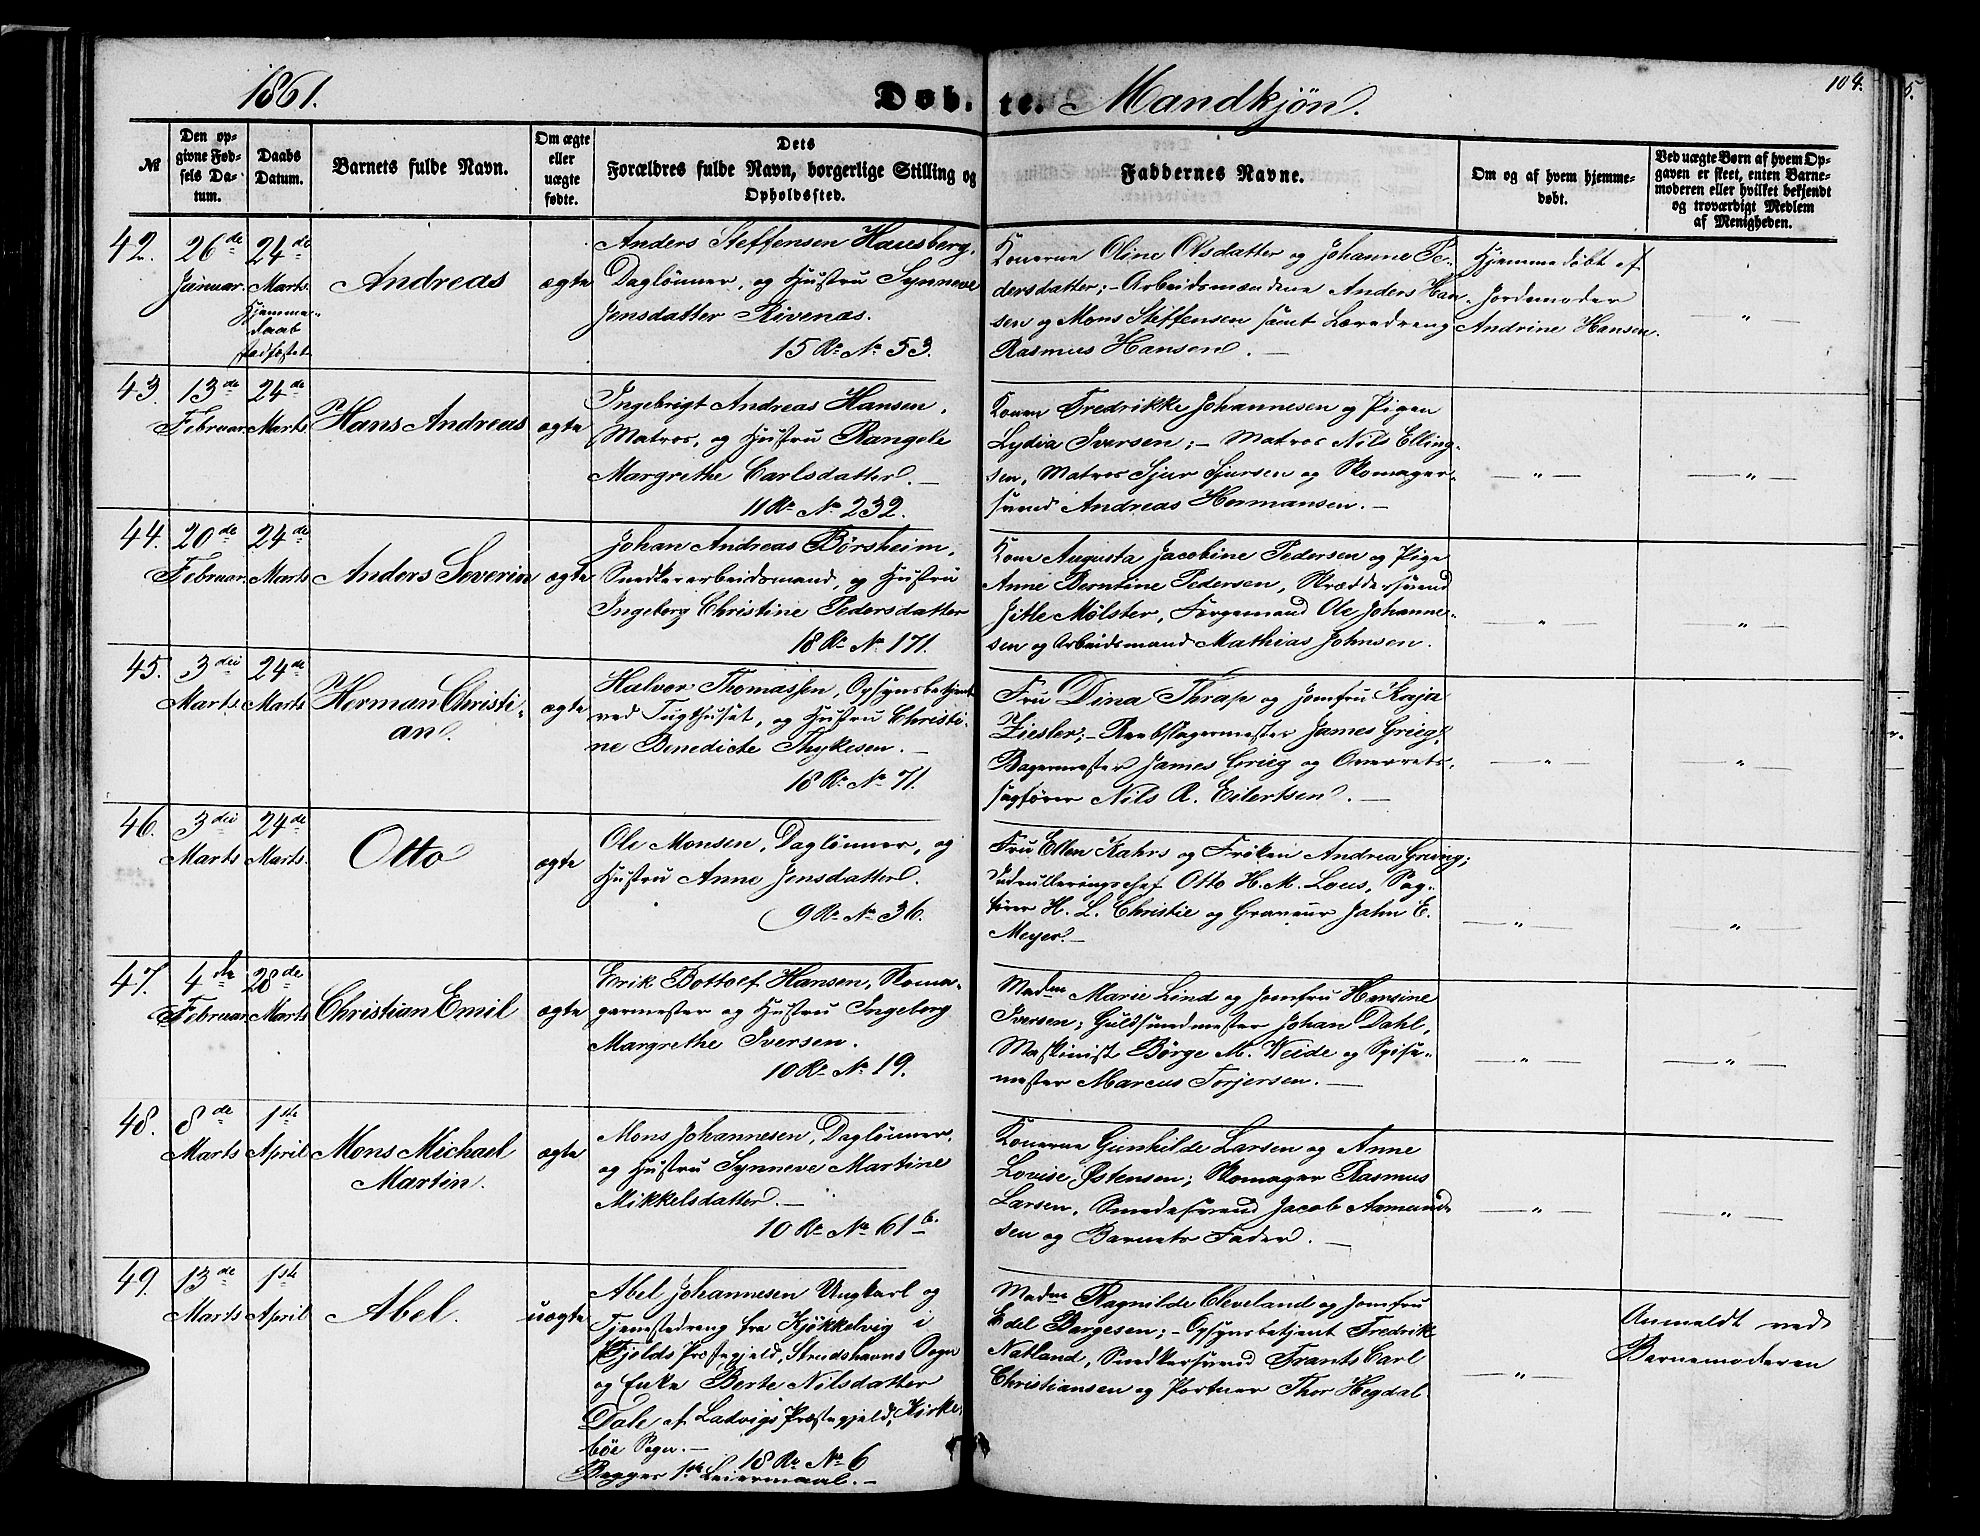 1861.
Døbte. Mandkjøn.
104.
№
Den opgivne Fødsels Datum.
Daabs Datum.
Barnets fulde Navn.
Om ægte eller uægte fødte.
Dets Forældres fulde Navn, borgerlige Stilling og Opholdssted.
Faddernes Navne.
Om og af hvem hjemmedøbt.
Ved uægte Børn af hvem Opgaven er skeet, enten Barnemoderen eller hvilket bekjendt og troværdigt Medlem af Menigheden.
42.
26de
Januar.
24de
Marts.
Hjemme-
daab
stadfæstet
Andreas
ægte
Anders Steffensen Hauesberg,
Daglønner, og Hustru Synneve
Jensdatter Rivenæs.
15 Re No 53.
Konerne Oline Olsdatter og Johanne Pe-
dersdatter; - Arbeidsmændene Anders Han-
sen og Mons Steffensen samt Læredreng
Rasmus Hansen. —
Hjemmedøbt af
Jordemoder
Andrine Hansen.
— " —
43.
13de
Februar.
24de
Marts
Hans Andreas
ægte
Ingebrigt Andreas Hansen,
Matros, og Hustru Rangele
Margrethe Carlsdatter. —
11 Re No 232.
Konen Fredrikke Johannesen og Pigen
Lydia Iversen; - Matros Nils Elling-
sen, Matros Sjur Sjursen og Skomager-
svend Andreas Hermansen. -
— " —
— " —
44.
20de
Februar.
24de
Marts
Anders Severin
ægte
Johan Andreas Børsheim,
Snedkerarbeidsmand, og Hustru
Ingeborg Christine Pedersdatter
18 Re No 171.
Kone Augusta Jacobine Pedersen og Pige
Anne Berntine Pedersen, Skræddersvend
Jitle Mølster, Færgemand Ole Johanne-
sen og Arbeidsmand Mathias Johnsen.
— " —
— " —
45.
3die
Marts.
24de
Marts
Herman Christi-
an.
ægte
Halvor Thomassen, Opsynsbetjent
ved Tugthuset, og Hustru Christi-
ne Benedicte Thykesen. —
18 Re No 71.
Fru Dina Thrap og Jomfru Kaja
Ziesler; - Reebslagermester James Grieg,
Bagermester James Grieg og Overrets-
sagfører Nils R. Eilertsen. —
— " —
— " —
46.
3die
Marts
24de
Marts.
Otto
ægte
Ole Monsen, Daglønner, og
Hustru Anne Jensdatter.
9 Re No 36.
Fru Ellen Kahrs og Frøken Andrea Greving;
Indrulleringschef Otto H. M. Lous, Sag-
fører H. L. Christie og Graveur Jahn E.
Meyer. —
— " —
— " —
47.
4de
Februar.
28de
Marts
Christian Emil
ægte
Erik Bottolf Hansen, Skoma-
germester og Hustru Ingeborg
Margrethe Iversen.
10 Re No 19.
Madme Marie Lind og Jomfru Hansine
Iversen; Guldsmedmester Johan Dahl,
Maskinist Børge M. Weide og Spise-
mester Marcus Torjersen. —
— " —
— " —
48.
8de
Marts
1ste
April
Mons Michael
Martin.
ægte
Mons Johannesen, Daglønner,
og Hustru Synneve Martine
Mikkelsdatter. —
10 Re No 61 b.
Konerne Gunhilde Larsen og Anne
Lovise Østensen; Skomager Rasmus
Larsen, Smedesvend Jacob Aamund-
sen og Barnets Fader. —
— " —
— " —
49.
13de
Marts
1ste
April
Abel.
uægte
Abel Johannesen Ungkarl og
Tjenestedreng fra Kjøkkelvig i
Fjelds Præstegjeld, Strudshavns Sogn
og Enke Berte Nilsdatter
Dale af Ladvigs Præstegjeld, Kirke-
bøe Sogn. —
18 Re No 6
Begges 1ste Leiermaal. —
Madme Ragnilde Cleveland og Jomfru
Edel Børgesen; - Opsynsbetjent Fredrik
Natland, Snedkersvend Frants Carl
Christiansen og Portner Thor Hegdal
— " —
Anmeldt ved
Barnemoderen